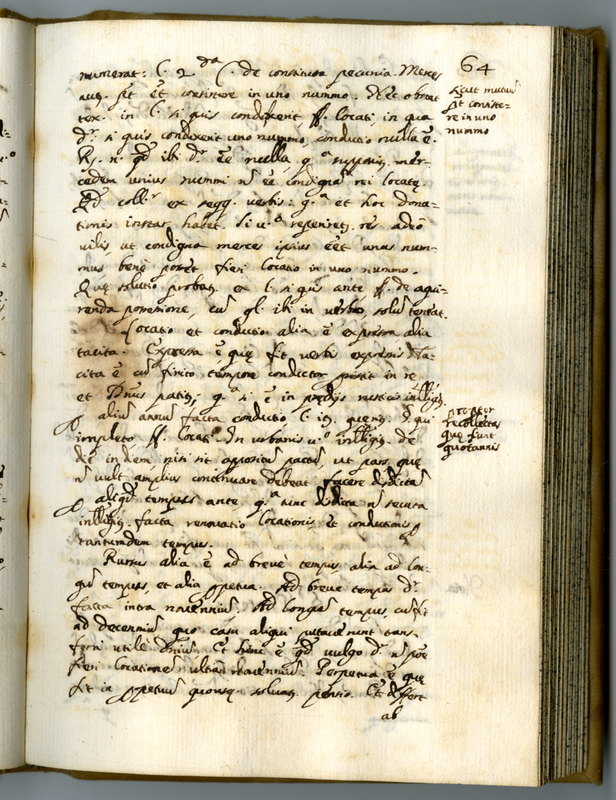 64
numerat: l. 2 C. de constituta pecunia. Merces
aut. pt et consistere in uno nummo. Nec obstat
tex. in l. si quis conduxerit ff. locati in qua
dr. si quis conduxerit uno nummo, conductio nulla e.
Rs. n. qd ibi dr. ee nulla, qa
cedem unius nummi n ee condigna rei locatę
Qd ex seqq. verbis: qa et hoc dona=
tionis instar habet. Si uo reperiret res adeo
vilis, ut condigna merces ipsius eet unus num=
mus benè posset fieri locatio in uno nummo.
Quę solutio probat. ex l. si quis ante ff. de aqui=
renda possessione, cu gl. ibi in verbo
Locatio et conductio alia e expressa alia
tacita. Expressa e quę fit verbis expressis Ta=
cita e cu finito tempore conductor in re
et Dnus patit, qa si e in predijs rusticis intlligit.
alium annum facta conductio l. qui
impleto ff. locati. In urbanis uo intlligit. de
die in diem, nisi sit appositu pactu, ut pars quę
n vult amplius continuare debeat facere
aliqd tempus ante qa tunc n secuta
intlligit. facta renovatio locationis et conductionis p
tantumdem tempus.
Rursus alia e ad breve tempus alia ad lon=
gu tempus, et alia ppetua. Ad breve tempus dr.
facta intra novenniu. Ad longu tempus, cu fit
ad decenniu quo casu aliqui putaverunt trans=
ferri utile Dniu. Et hinc e qd vulgo dr. n posse
fieri locatione ultra novenniu. Perpetua e quę
fit in ppetuu quousq. solvat pensio. Et differt
ab
consiste=
re in uno
nummo
propter
recollectas
quę sunt
quotannis